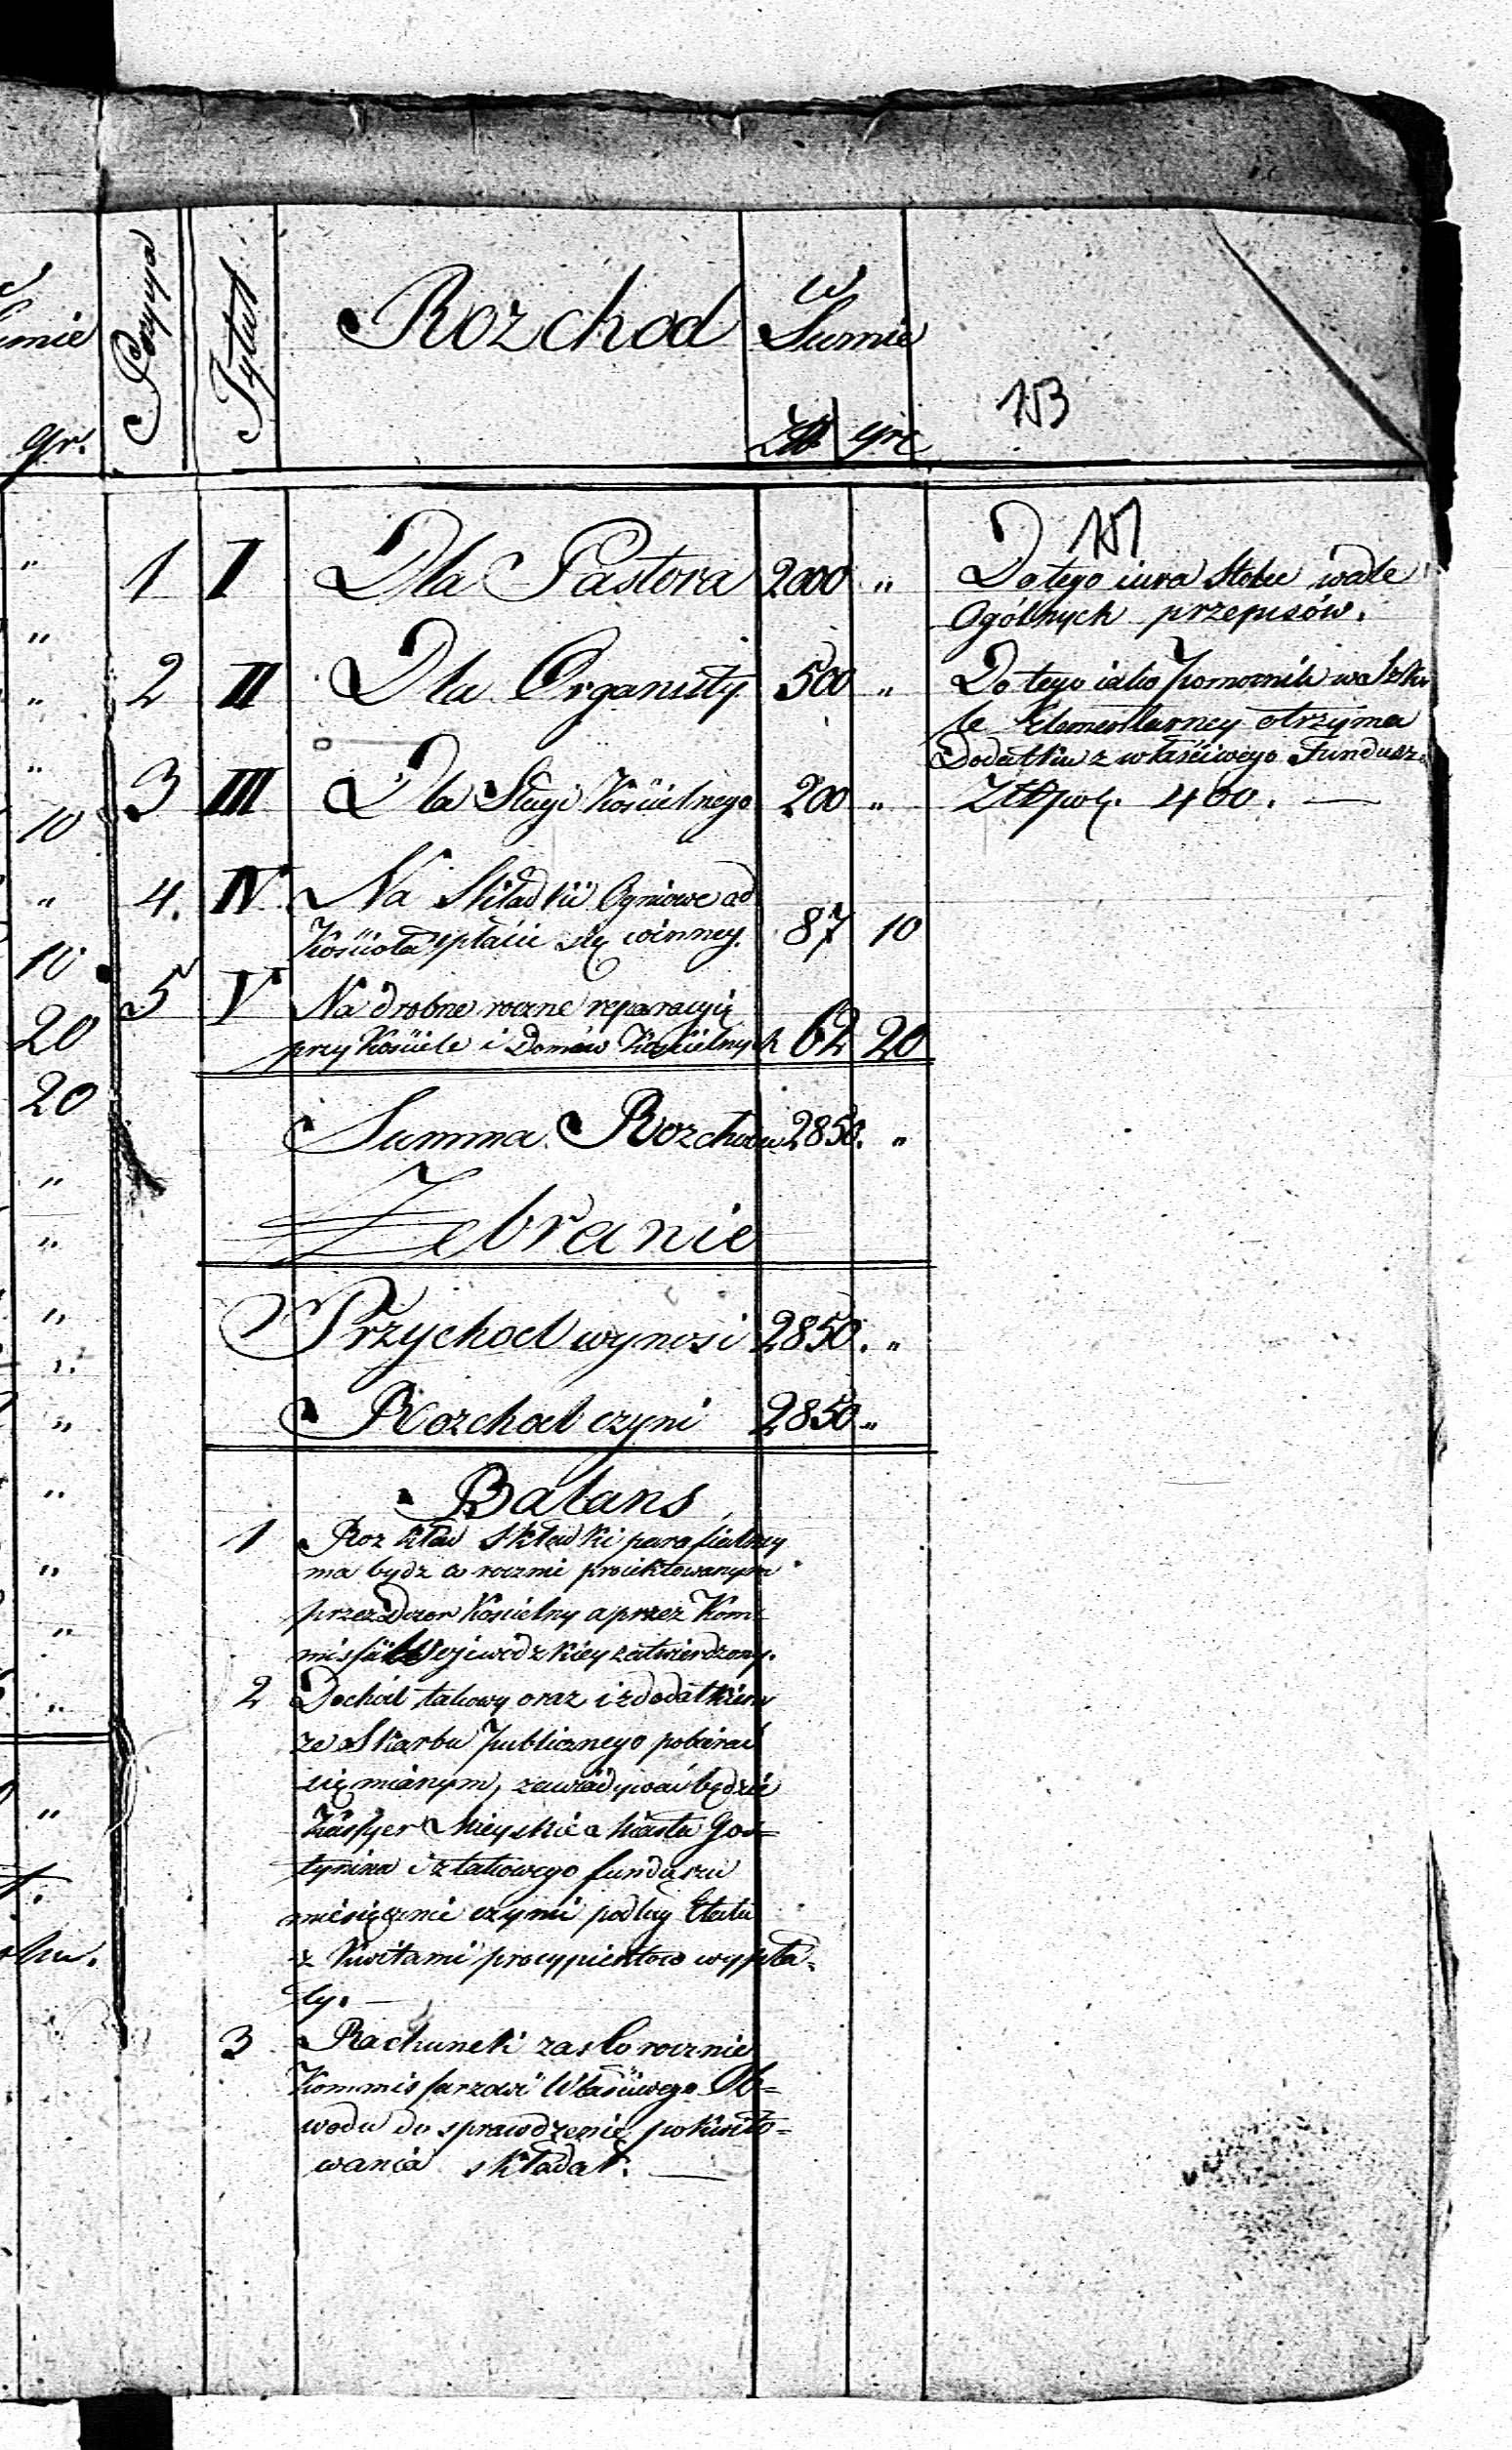 Pozycya
Tytuł
Rozchod
w
Sumie
Złł grc
153
gr.
151
1 I Dla Pastora 2000 "
Do tego iura Stolae wedle
Ogólnych przepisów.
2 II Dla Organisty 500 "
Do tego iako Pomocnik w Szko
le Elementarney otrzyma
Dodatku z właściwego Fundusz
Złłpol. 400. —
3 III Dla Sługi Kościelnego 200 "
4. IV Na Składki Ogniowe od
Kościoła płacić się winney. 87 10
5 V Na drobne roczne reparacyie
przy Kościele i Domów Kościelnych 62 20
Summa Rozchodu 2850. "
Zebranie
Przychod wynosi 2850. "
Rozchod czyni 2850 "
Balans
1 Rozkład składki parafialney
ma bydz co rocznie proiektowanym
przez Dozor Kościelny a przez Kom=
missią Wojewódzkiey zatwierdzony.
2 Dochód takowy oraz i z dodatkiem
ze Skarbu Publicznego pobierać
się mianym, zawiadywać będzie
Kassyer Mieyski Miasta Gos=
tynina i z takowego funduszu
miesięcznie czyni podług Etatu
z Kwitami precypientow wypła=
ty. —
3 Rachunek zaś Corocznie
Kommissarzowi Właściwego Ob=
wodu do sprawdzenia pokwito=
wania składał. —